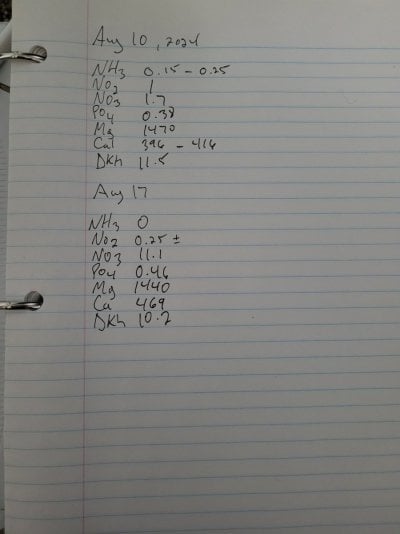 Aug 10, 2024
NH3 0.15 - 0.25
NO2 1
NO3 1.7
PO4 0.38
Mg 1470
Cal 396 - 416
DKh 11.5
Aug 17
NH3 0
NO2 0.25 ±
NO3 11.1
PO4 0.46
Mg 1440
Ca 469
DKh 10.2